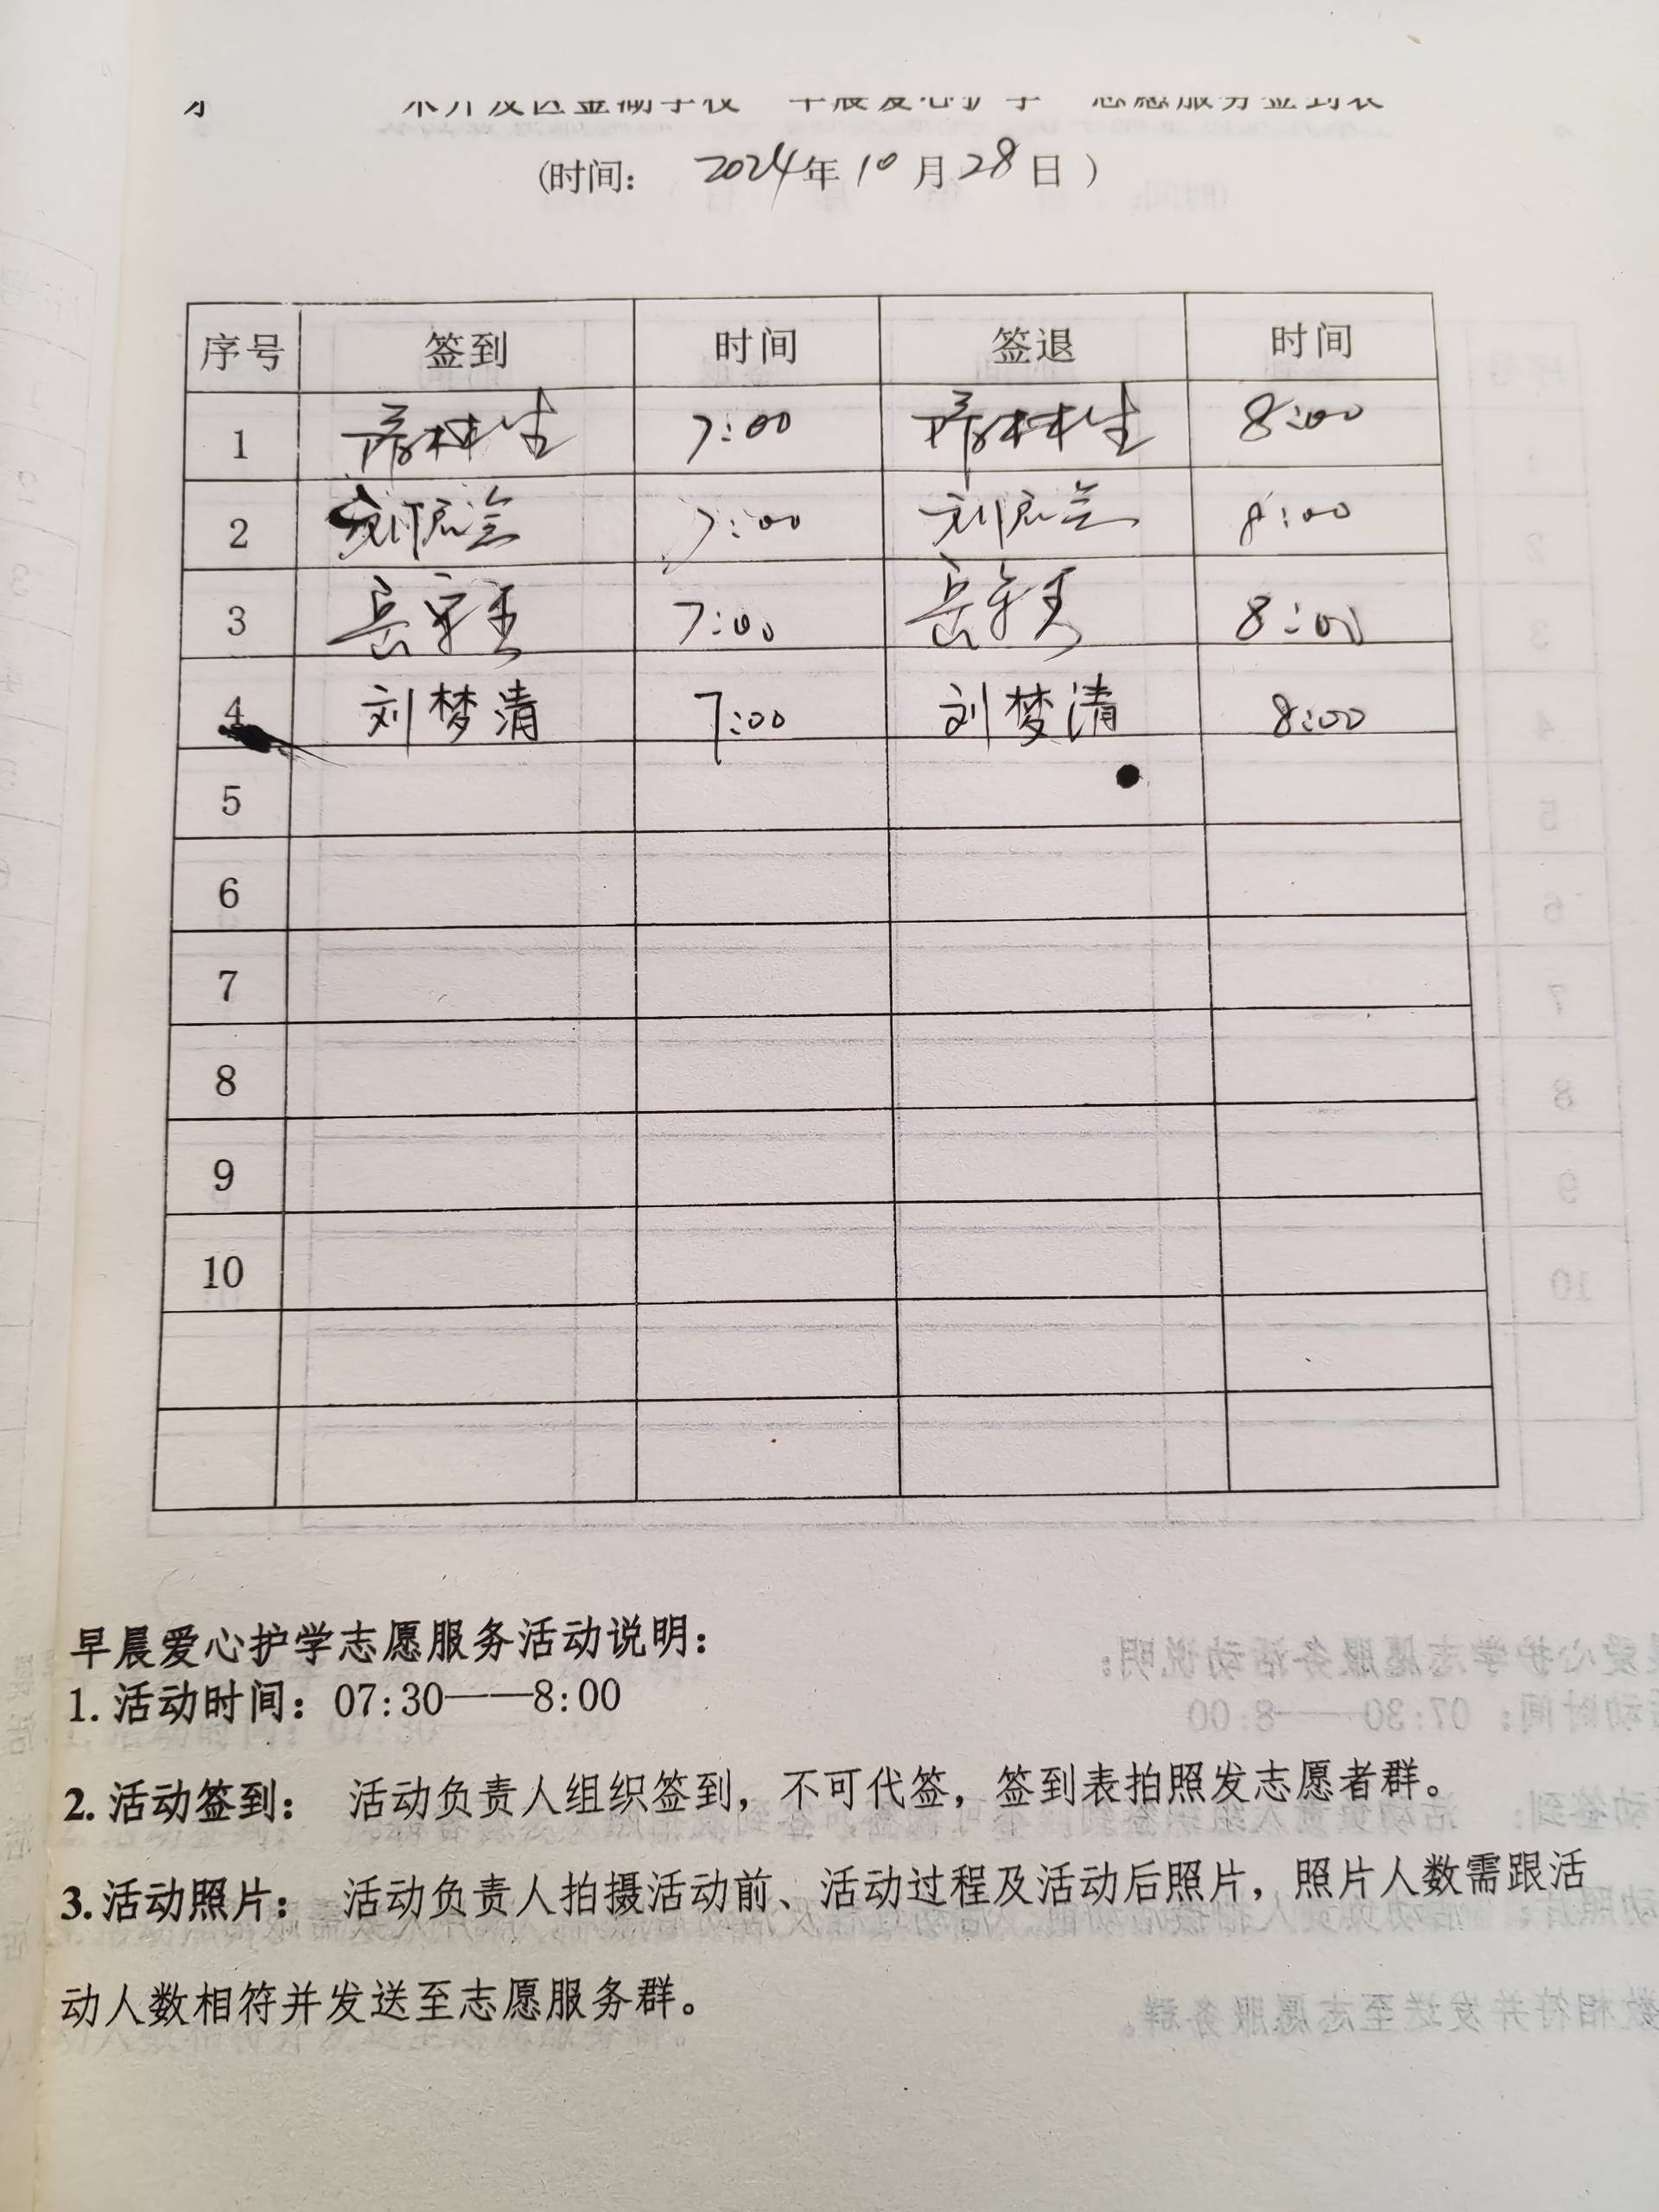 术开发区金湖学校 早晨爱心护学 志愿服务签到表
(时间: 2024年10月28日)
序号 签到 时间 签退 时间
1 7:00 8:00
2 刘 7:00 刘 8:00
3 岳 7:00 岳 8:00
4 刘梦清 7:00 刘梦清 8:00
5
6
7
8
9
10
早晨爱心护学志愿服务活动说明:
1. 活动时间: 07:30——8:00
2. 活动签到: 活动负责人组织签到, 不可代签, 签到表拍照发志愿者群。
3. 活动照片: 活动负责人拍摄活动前、活动过程及活动后照片, 照片人数需跟活
动人数相符并发送至志愿服务群。